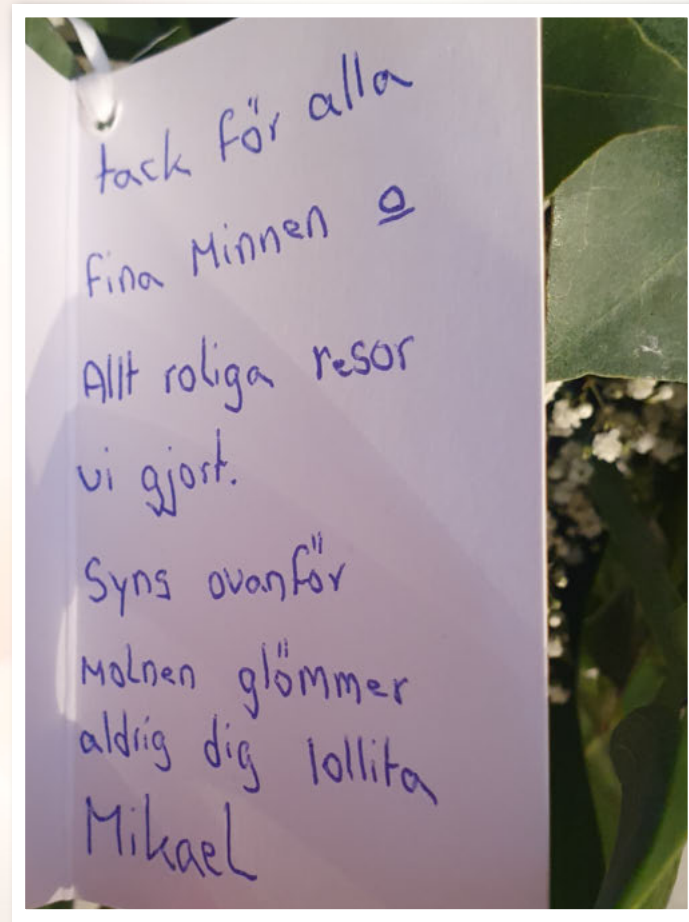 tack för alla
fina Minnen o
Allt roliga resor
vi gjort.
Syns ovanför
Molnen glömmer
aldrig dig lollita
Mikael